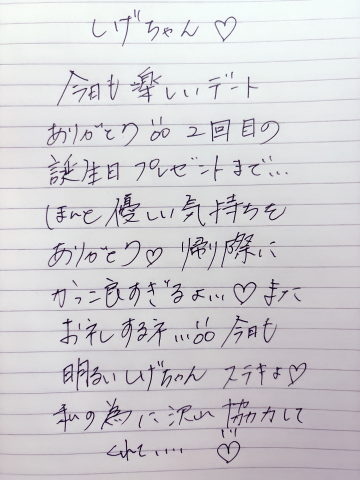 しげちゃん♡
今日も楽しいデート
ありがとう!! 2回目の
誕生日プレゼントまで...
ほんと優しい気持ちを
ありがとう♡ 帰り際に
かっこ良すぎるよ...♡また
お礼するネ...!! 今日も
明るいしげちゃん ステキよ♡
私の為に沢山協力して
くれて.....♡